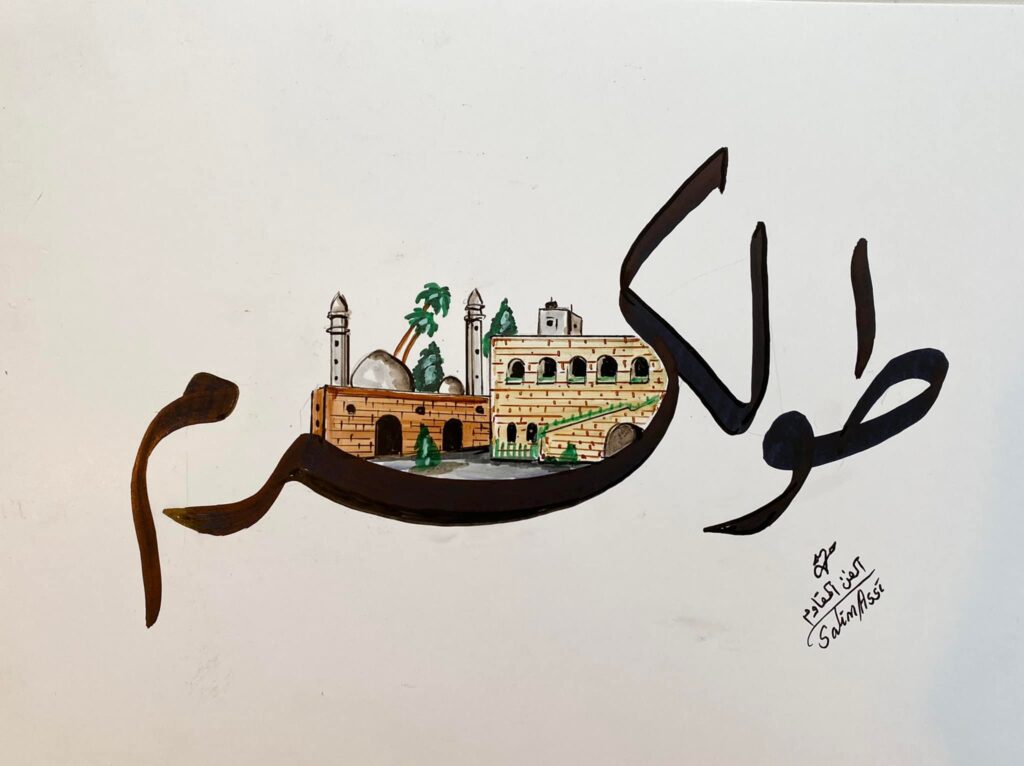 طولكرم
الفن المقاوم
Salim Assi